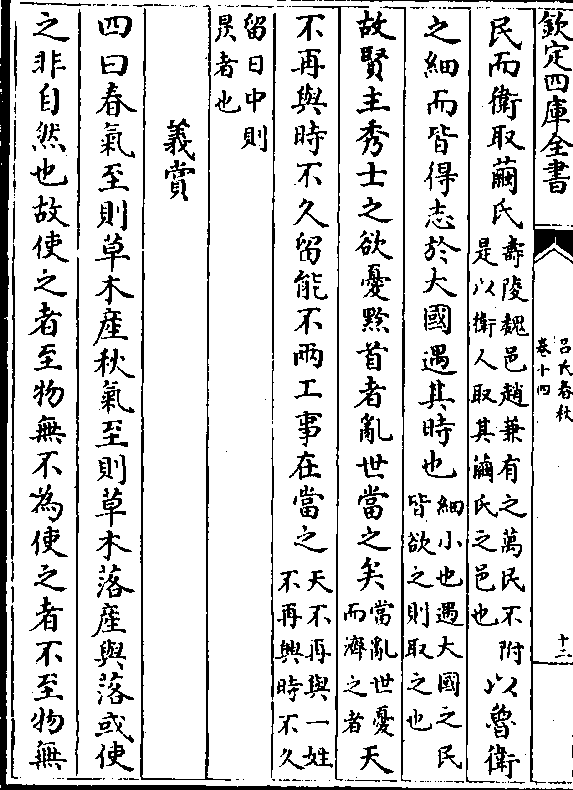 欽定四庫全書
呂氏春秋
卷十四
十三
民而衛取繭氏壽陵魏邑趙兼有之萬民不附是以衛人取其繭氏之邑也以魯衛
之細而皆得志於大國遇其時也細小也遇大國之民皆欲之則取之也
故賢主秀士之欲憂黔首者亂世當之矣當亂世憂而濟之者天
不再與時不久留能不兩工事在當之天不再與一姓不再興時不久
留日中則昃者也
義賞
四曰春氣至則草木產秋氣至則草木落產與落或使
之非自然也故使之者至物無不為使之者不至物無